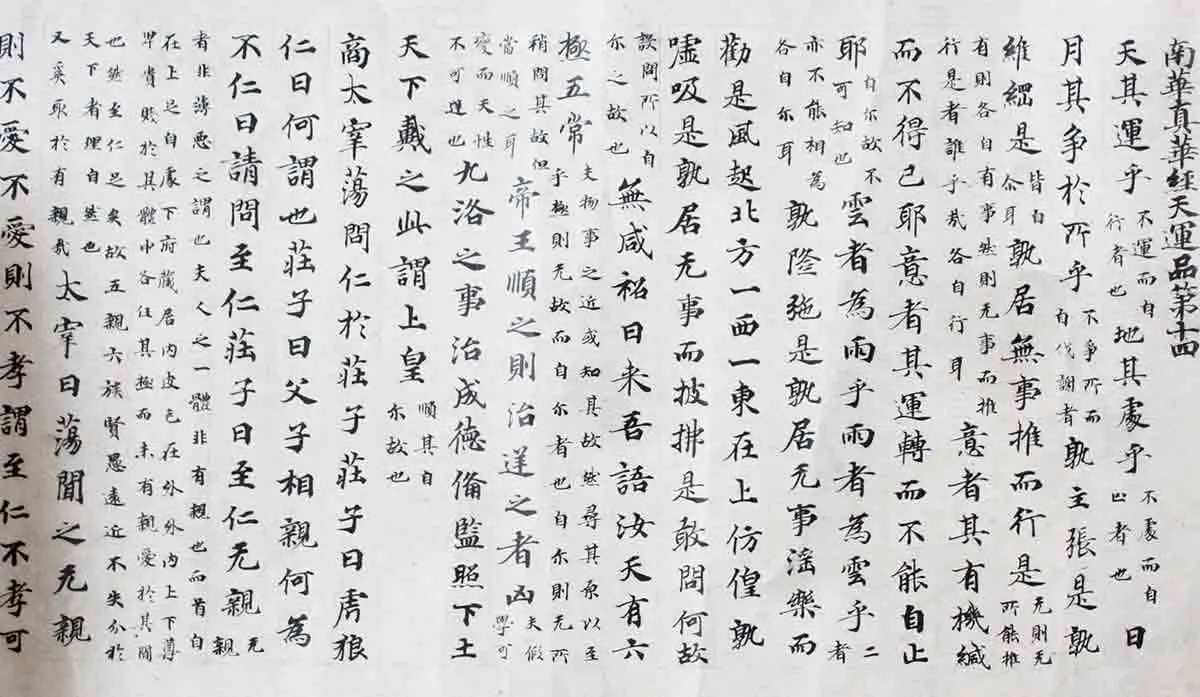 南華真華經天運品第十四
天其運乎不運而自行者也地其處乎不處而自止者也日
月其争於所乎不争所而自代謝者孰主張是孰
維綱是皆自尒耳孰居無事推而行是无則无所能推
有則各自有事然則无事而推行是者誰乎哉各自行耳意者其有機緘
而不得已耶意者其運轉而不能自止
耶自尔故不可知也雲者為雨乎雨者為雲乎二者
亦不能相為各自尔耳孰隆弛是孰居无事滛樂而
勸是風起北方一西一東在上仿偟孰
嘘吸是孰居无事而披拂是敢問何故
設問所以自尔之故也無咸袑曰来吾語汝天有六
極五常夫物事之近或知其故然尋其原以至乎極則无故而自尔者也自尔則无所
稍問其故但當順之耳帝王順之則治逆之者凶夫假學可
變而天性不可逆也九洛之事治成德俻監照下土
天下戴之此謂上皇順其自尔故也
商太宰蕩問仁於莊子莊子曰虎狼
仁曰何謂也莊子曰父子相親何為
不仁曰請問至仁莊子曰至仁无親无親
者非薄悪之謂也夫人之一體非有親也而首自在上足自處下府藏居内皮毛在外外内上下尊
卑貴賤於其體中各任其極而未有親愛於其間也然至仁足矣故五親六族賢愚遠近不失分於
天下者理自然也又奚取於有親哉太宰曰蕩聞之无親
則不愛不愛則不孝謂至仁不孝可